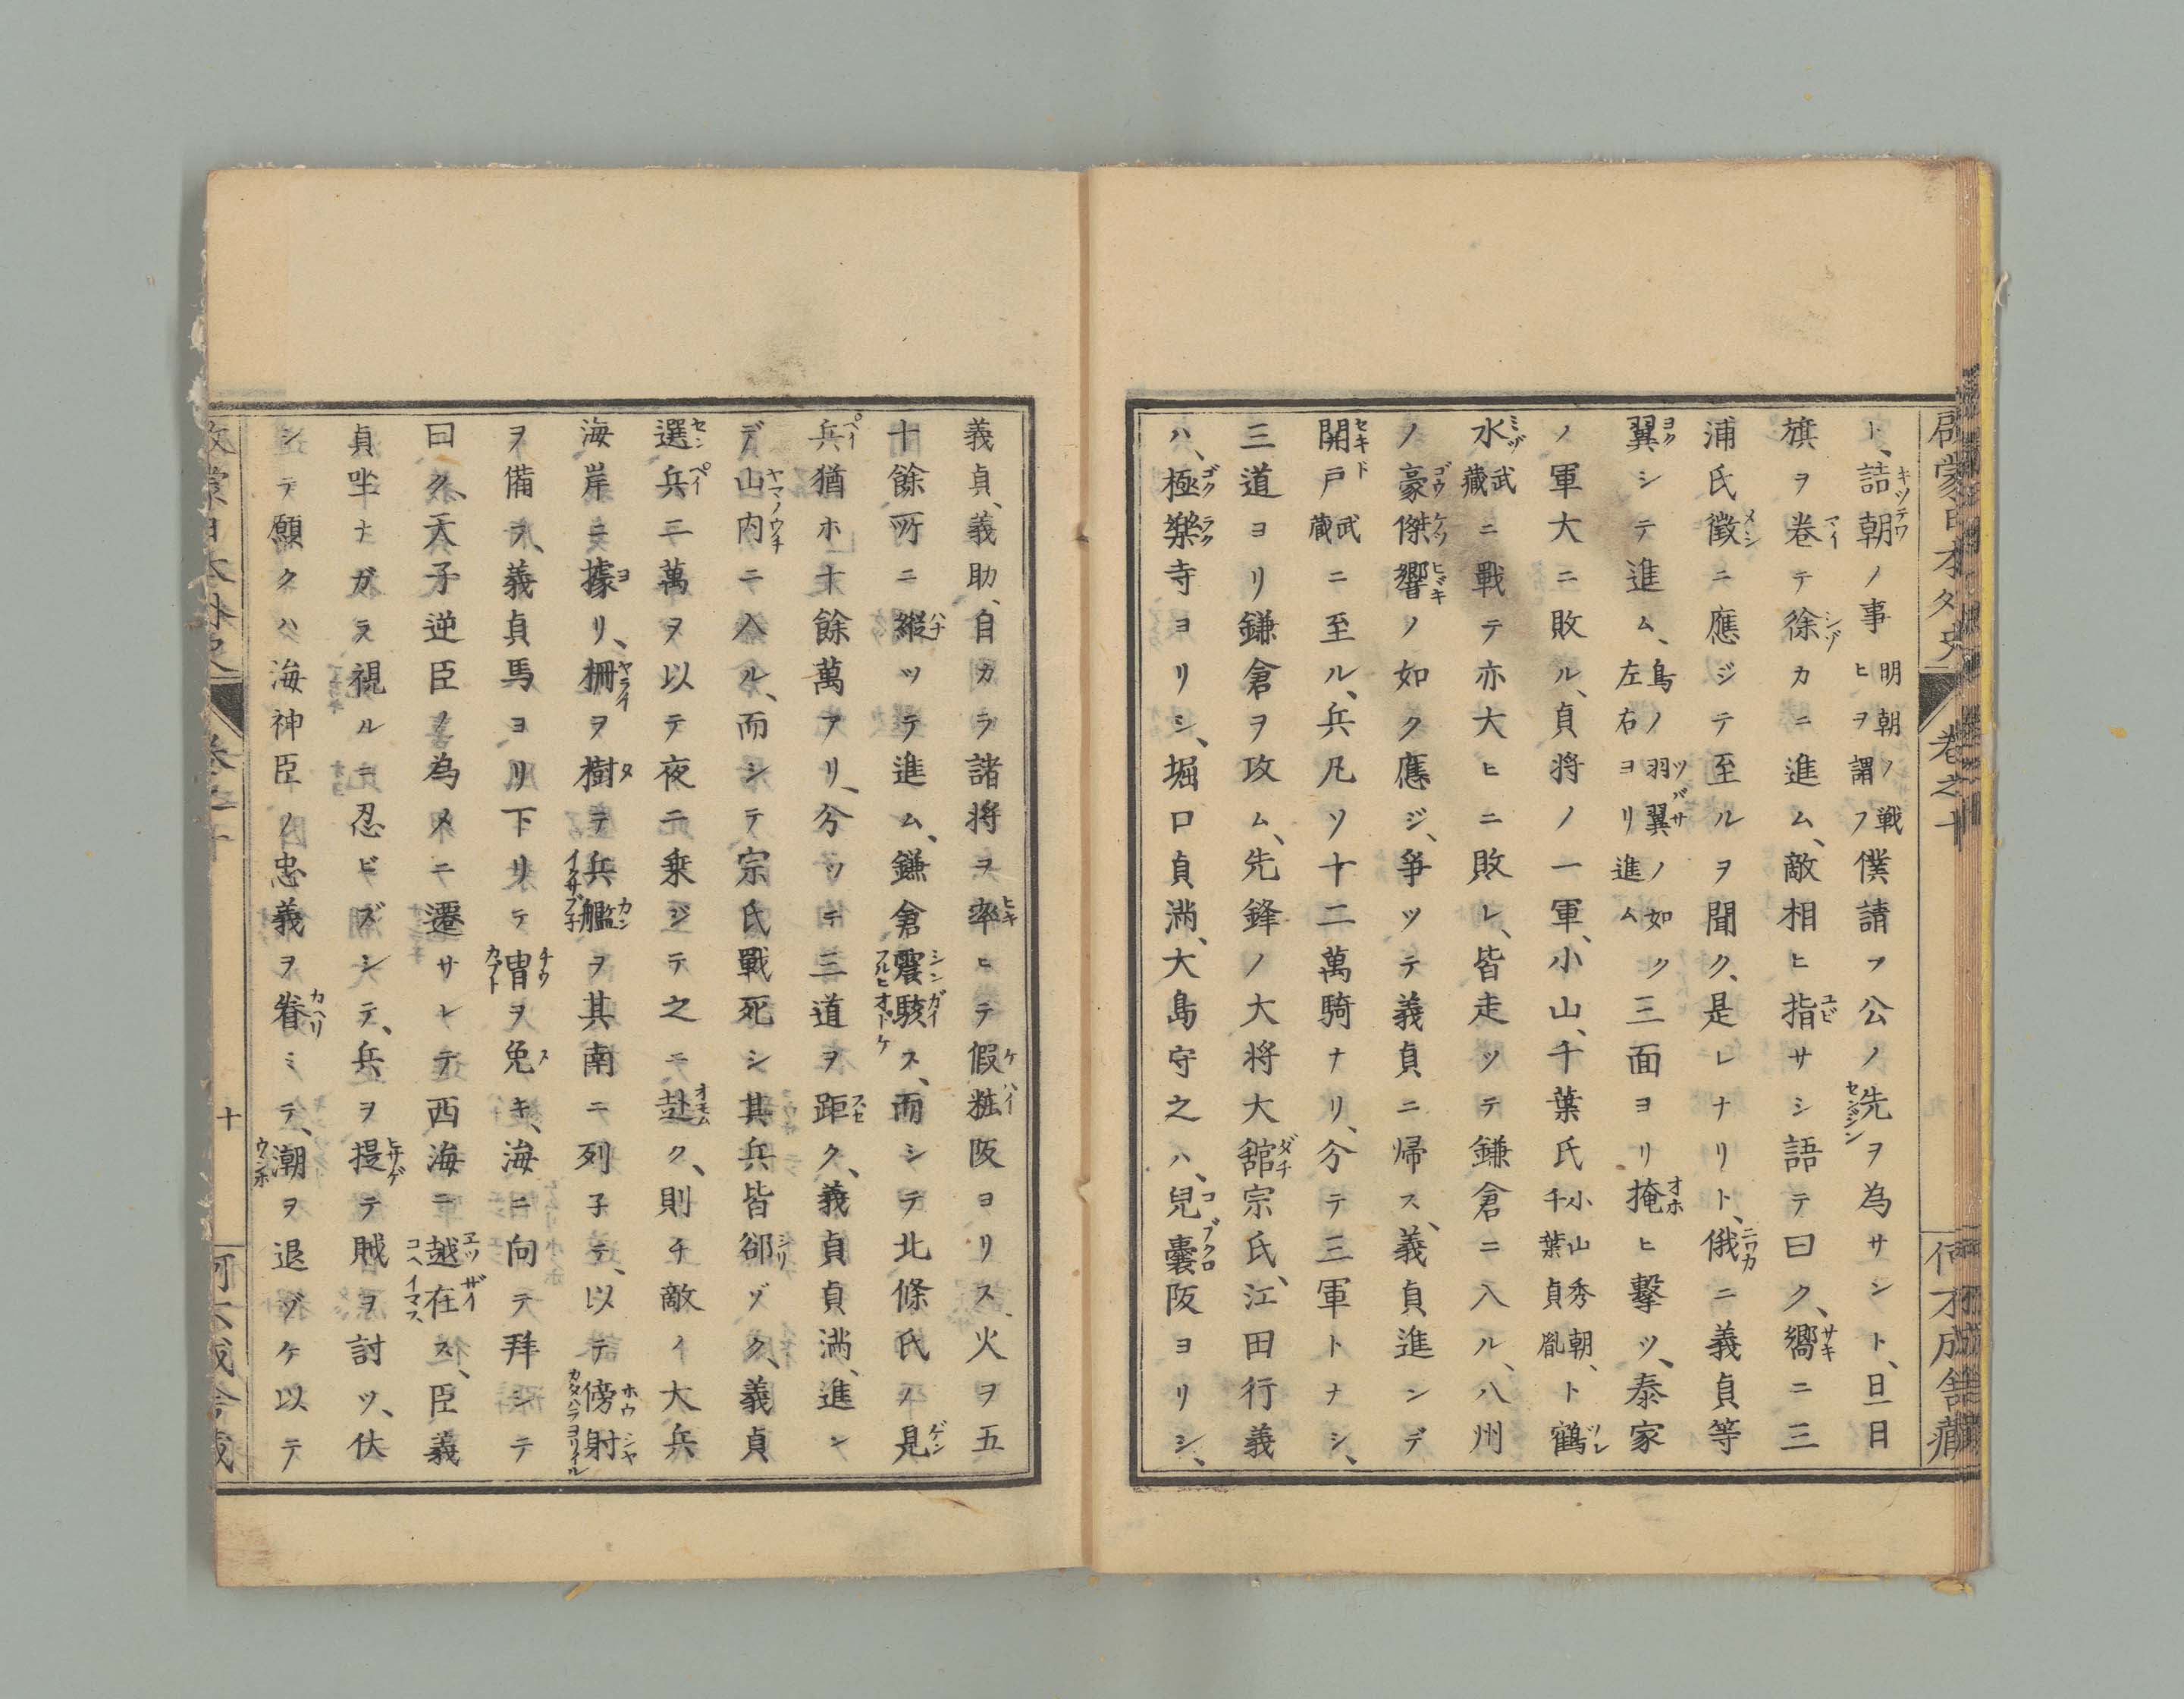 ト、詰朝ノ事明朝ノ戦ヒヲ謂フ僕請フ公ノ先ヲ為サシト、旦日
旗ヲ卷テ徐カニ進ム、敵相ヒ指サシ語テ曰ク、嚮ニ三
浦氏徴ニ應ジテ至ルヲ聞ク、是レナリト、俄ニ義貞等
翼シテ進ム、鳥ノ羽翼ノ如ク左右ヨリ進ム三面ヨリ掩ヒ擊ツ、泰家
ノ軍大ニ敗ル、貞将ノ一軍、小山、千葉氏小山秀朝、千葉貞胤ト鶴
水武藏ニ戰テ亦大ヒニ敗レ、皆走ツテ鎌倉ニ入ル、八州
ノ豪傑響ノ如ク應ジ、爭ツテ義貞ニ帰ス、義貞進ンデ
関戸武藏ニ至ル、兵凡ソ十二萬騎ナリ、分テ三軍トナシ、
三道ヨリ鎌倉ヲ攻ム、先鋒ノ大将大舘宗氏、江田行義
ハ、極樂寺ヨリシ、堀口貞満、大島守之ハ、兒嚢阪ヨリシ、
義貞、義助、自カラ諸将ヲ率ヒテ假粧阪ヨリス、火ヲ五
十餘所ニ縦ツテ進ム、鎌倉震駭ス、而シテ北條氏ノ見
兵猶ホ十餘萬アリ、分ツテ三道ヲ距ク、義貞貞満、進ン
デ山内ニ入ル、而シテ宗氏戰死シ其兵皆郤ゾク、義貞
選兵二萬ヲ以テ夜ニ乗ジテ之ニ赴ク、則チ敵イ大兵
海岸ニ據リ、柵ヲ樹テ兵艦ヲ其南ニ列子テ、以テ傍射
ヲ備テ、義貞馬ヨリ下リテ冑ヲ免キ、海ニ向テ拜シテ
曰ク、天子逆臣ノ為メニ遷サレテ西海ニ越在ス、臣義
貞坐ナガラ視ルニ忍ビズシテ、兵ヲ提テ賊ヲ討ツ、伏
シテ願クハ海神臣ノ忠義ヲ眷ミテ、潮ヲ退ゾケ以テ
卷之十
十